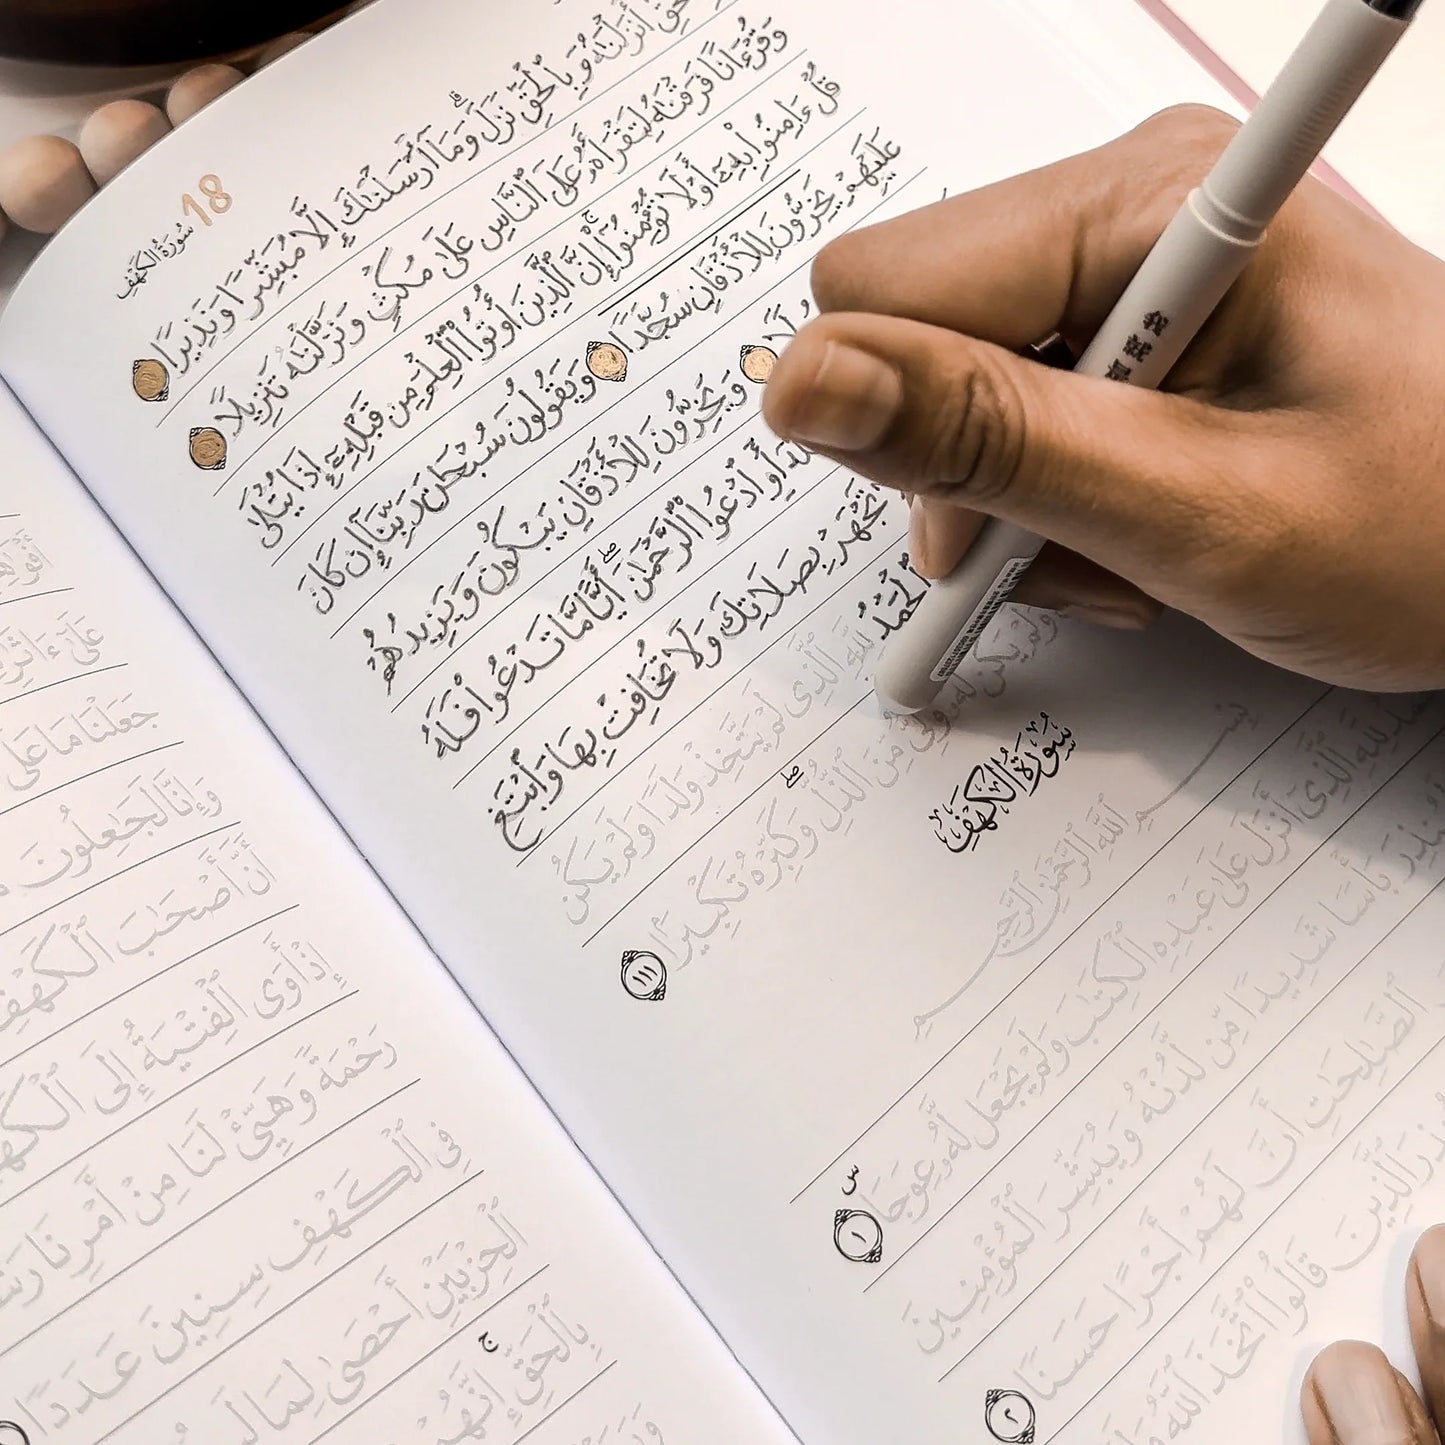 سُورَةُ الكَهْفِ 18
أَنزَلْنَٰهُ وَبِٱلْحَقِّ نَزَلَ ۗ وَمَآ أَرْسَلْنَٰكَ إِلَّا مُبَشِّرًا وَنَذِيرًا
وَقُرْءَانًا فَرَقْنَٰهُ لِتَقْرَأَهُۥ عَلَى ٱلنَّاسِ عَلَىٰ مُكْثٍ وَنَزَّلْنَٰهُ تَنزِيلًا
قُلْ ءَامِنُوا۟ بِهِۦٓ أَوْ لَا تُؤْمِنُوٓا۟ ۚ إِنَّ ٱلَّذِينَ أُوتُوا۟ ٱلْعِلْمَ مِن قَبْلِهِۦٓ إِذَا يُتْلَىٰ
عَلَيْهِمْ يَخِرُّونَ لِلْأَذْقَانِ سُجَّدًا وَيَقُولُونَ سُبْحَٰنَ رَبِّنَآ إِن كَانَ
وَيَخِرُّونَ لِلْأَذْقَانِ يَبْكُونَ وَيَزِيدُهُمْ
أَوِ ٱدْعُوا۟ ٱلرَّحْمَٰنَ ۖ أَيًّا مَّا تَدْعُوا۟ فَلَهُ
تَجْهَرْ بِصَلَاتِكَ وَلَا تُخَافِتْ بِهَا وَٱبْتَغِ
ٱلْحَمْدُ لِلَّهِ ٱلَّذِى لَمْ يَتَّخِذْ وَلَدًا وَلَمْ يَكُن
وَلَمْ يَكُن لَّهُۥ وَلِىٌّ مِّنَ ٱلذُّلِّ ۖ وَكَبِّرْهُ تَكْبِيرًۢا ١١١
سُورَةُ الكَهْفِ
بِسْمِ ٱللَّهِ ٱلرَّحْمَٰنِ ٱلرَّحِيمِ
لِلَّهِ ٱلَّذِىٓ أَنزَلَ عَلَىٰ عَبْدِهِ ٱلْكِتَٰبَ وَلَمْ يَجْعَل لَّهُۥ عِوَجَا ۜ ١
بَأْسًا شَدِيدًا مِّن لَّدُنْهُ وَيُبَشِّرَ ٱلْمُؤْمِنِينَ
ٱلصَّٰلِحَٰتِ أَنَّ لَهُمْ أَجْرًا حَسَنًا ٢
ٱلَّذِينَ قَالُوا۟ ٱتَّخَذَ ٱللَّهُ
عَلَىٰٓ
جَعَلْنَا مَا عَلَى
وَإِنَّا لَجَٰعِلُونَ
أَنَّ أَصْحَٰبَ ٱلْكَهْفِ
إِذْ أَوَى ٱلْفِتْيَةُ إِلَى
رَحْمَةً وَهَيِّئْ لَنَا مِنْ أَمْرِنَا
فِى ٱلْكَهْفِ سِنِينَ عَدَدًا
ٱلْحِزْبَيْنِ أَحْصَىٰ لِمَا
بِٱلْحَقِّ ۚ إِنَّهُمْ
我 就